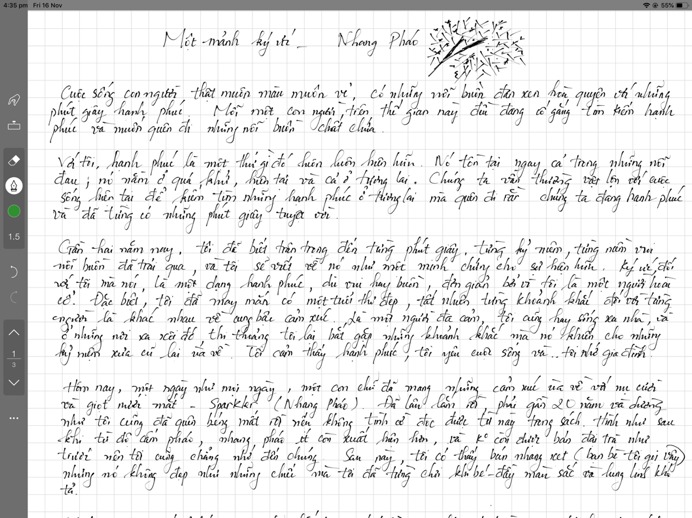 4:35 pm Fri 16 Nov 55%
Một mảnh ký ức - Nhang Pháo
Cuộc sống con người thật muôn màu muôn vẻ, có những nỗi buồn đan xen hòa quyện với những
phút giây hạnh phúc. Mỗi một con người trên thế gian này đều đang cố gắng tìm kiếm hạnh
phúc và muốn quên đi những nỗi buồn chất chứa.
Với tôi, hạnh phúc là một thứ gì đó luôn luôn hiện hữu. Nó tồn tại ngay cả trong những nỗi
đau; nó nằm ở quá khứ, hiện tại và cả ở tương lai. Chúng ta vẫn thường vật lộn với cuộc
sống hiện tại để kiếm tìm những hạnh phúc ở tương lai mà quên đi rằng chúng ta đang hạnh phúc
và đã từng có những phút giây tuyệt vời.
Gần hai năm nay, tôi đã biết trân trọng đến từng phút giây, từng kỷ niệm, từng năm vui
nỗi buồn đã trải qua, và tôi sẽ viết về nó như một minh chứng cho sự hiện hữu. Ký ức đối
với tôi mà nói, là một dạng hạnh phúc, dù vui hay buồn, đơn giản bởi vì tôi là một người hoài
cổ. Đặc biệt, tôi đã may mắn có một tuổi thơ đẹp, tất nhiên từng khoảnh khắc đối với từng
người là khác nhau về cung bậc cảm xúc. Là một người đa cảm, tôi cũng hay sống xa nhà, và
ở những nơi xa xôi đó thi thoảng tôi lại bắt gặp những khoảnh khắc mà nó khiến cho những
kỷ niệm xưa cũ lại ùa về. Tôi cảm thấy hạnh phúc, tôi yêu cuộc sống và.. tôi nhớ gia đình
Hôm nay, một ngày như mọi ngày, một con chữ đã mang những cảm xúc ùa về với nụ cười
và giọt nước mắt - Sparkler (Nhang Pháo). Đã lâu lắm rồi phải gần 20 năm và dường
như tôi cũng đã quên bẵng mất rồi nếu không tình cờ đọc được từ này trong sách. Hình như sau
khi từ đó cấm pháo, nhang pháo ít còn xuất hiện hơn, và ko còn được bán đầy trời như
trước nên tôi cũng chẳng nhớ đến chúng. Sau này, tôi có thấy bán nhang xẹt (bạn bè tôi gọi vậy)
nhưng nó không đẹp như những chiếc mà tôi đã từng chơi khi bé đầy màu sắc và lung linh khó
tả.
1.5
1
3